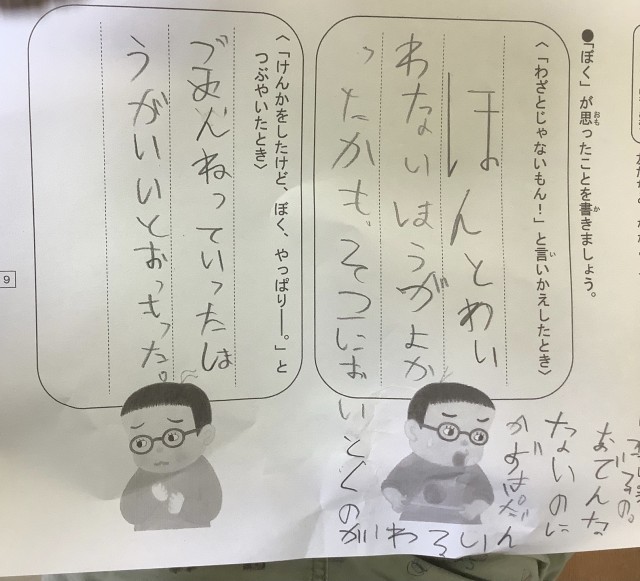 ●「ぼく」が思ったことを書きましょう。
〈「わざとじゃないもん！」と言いかえしたとき〉
ほんとわい
わないほうがよか
ったかも、そこにお
いとくのが
わるいん
ないのに
〈「けんかをしたけど、ぼく、やっぱりー。」と
つぶやいたとき〉
ごめんねっていったほ
うがいいとおっもった。
9